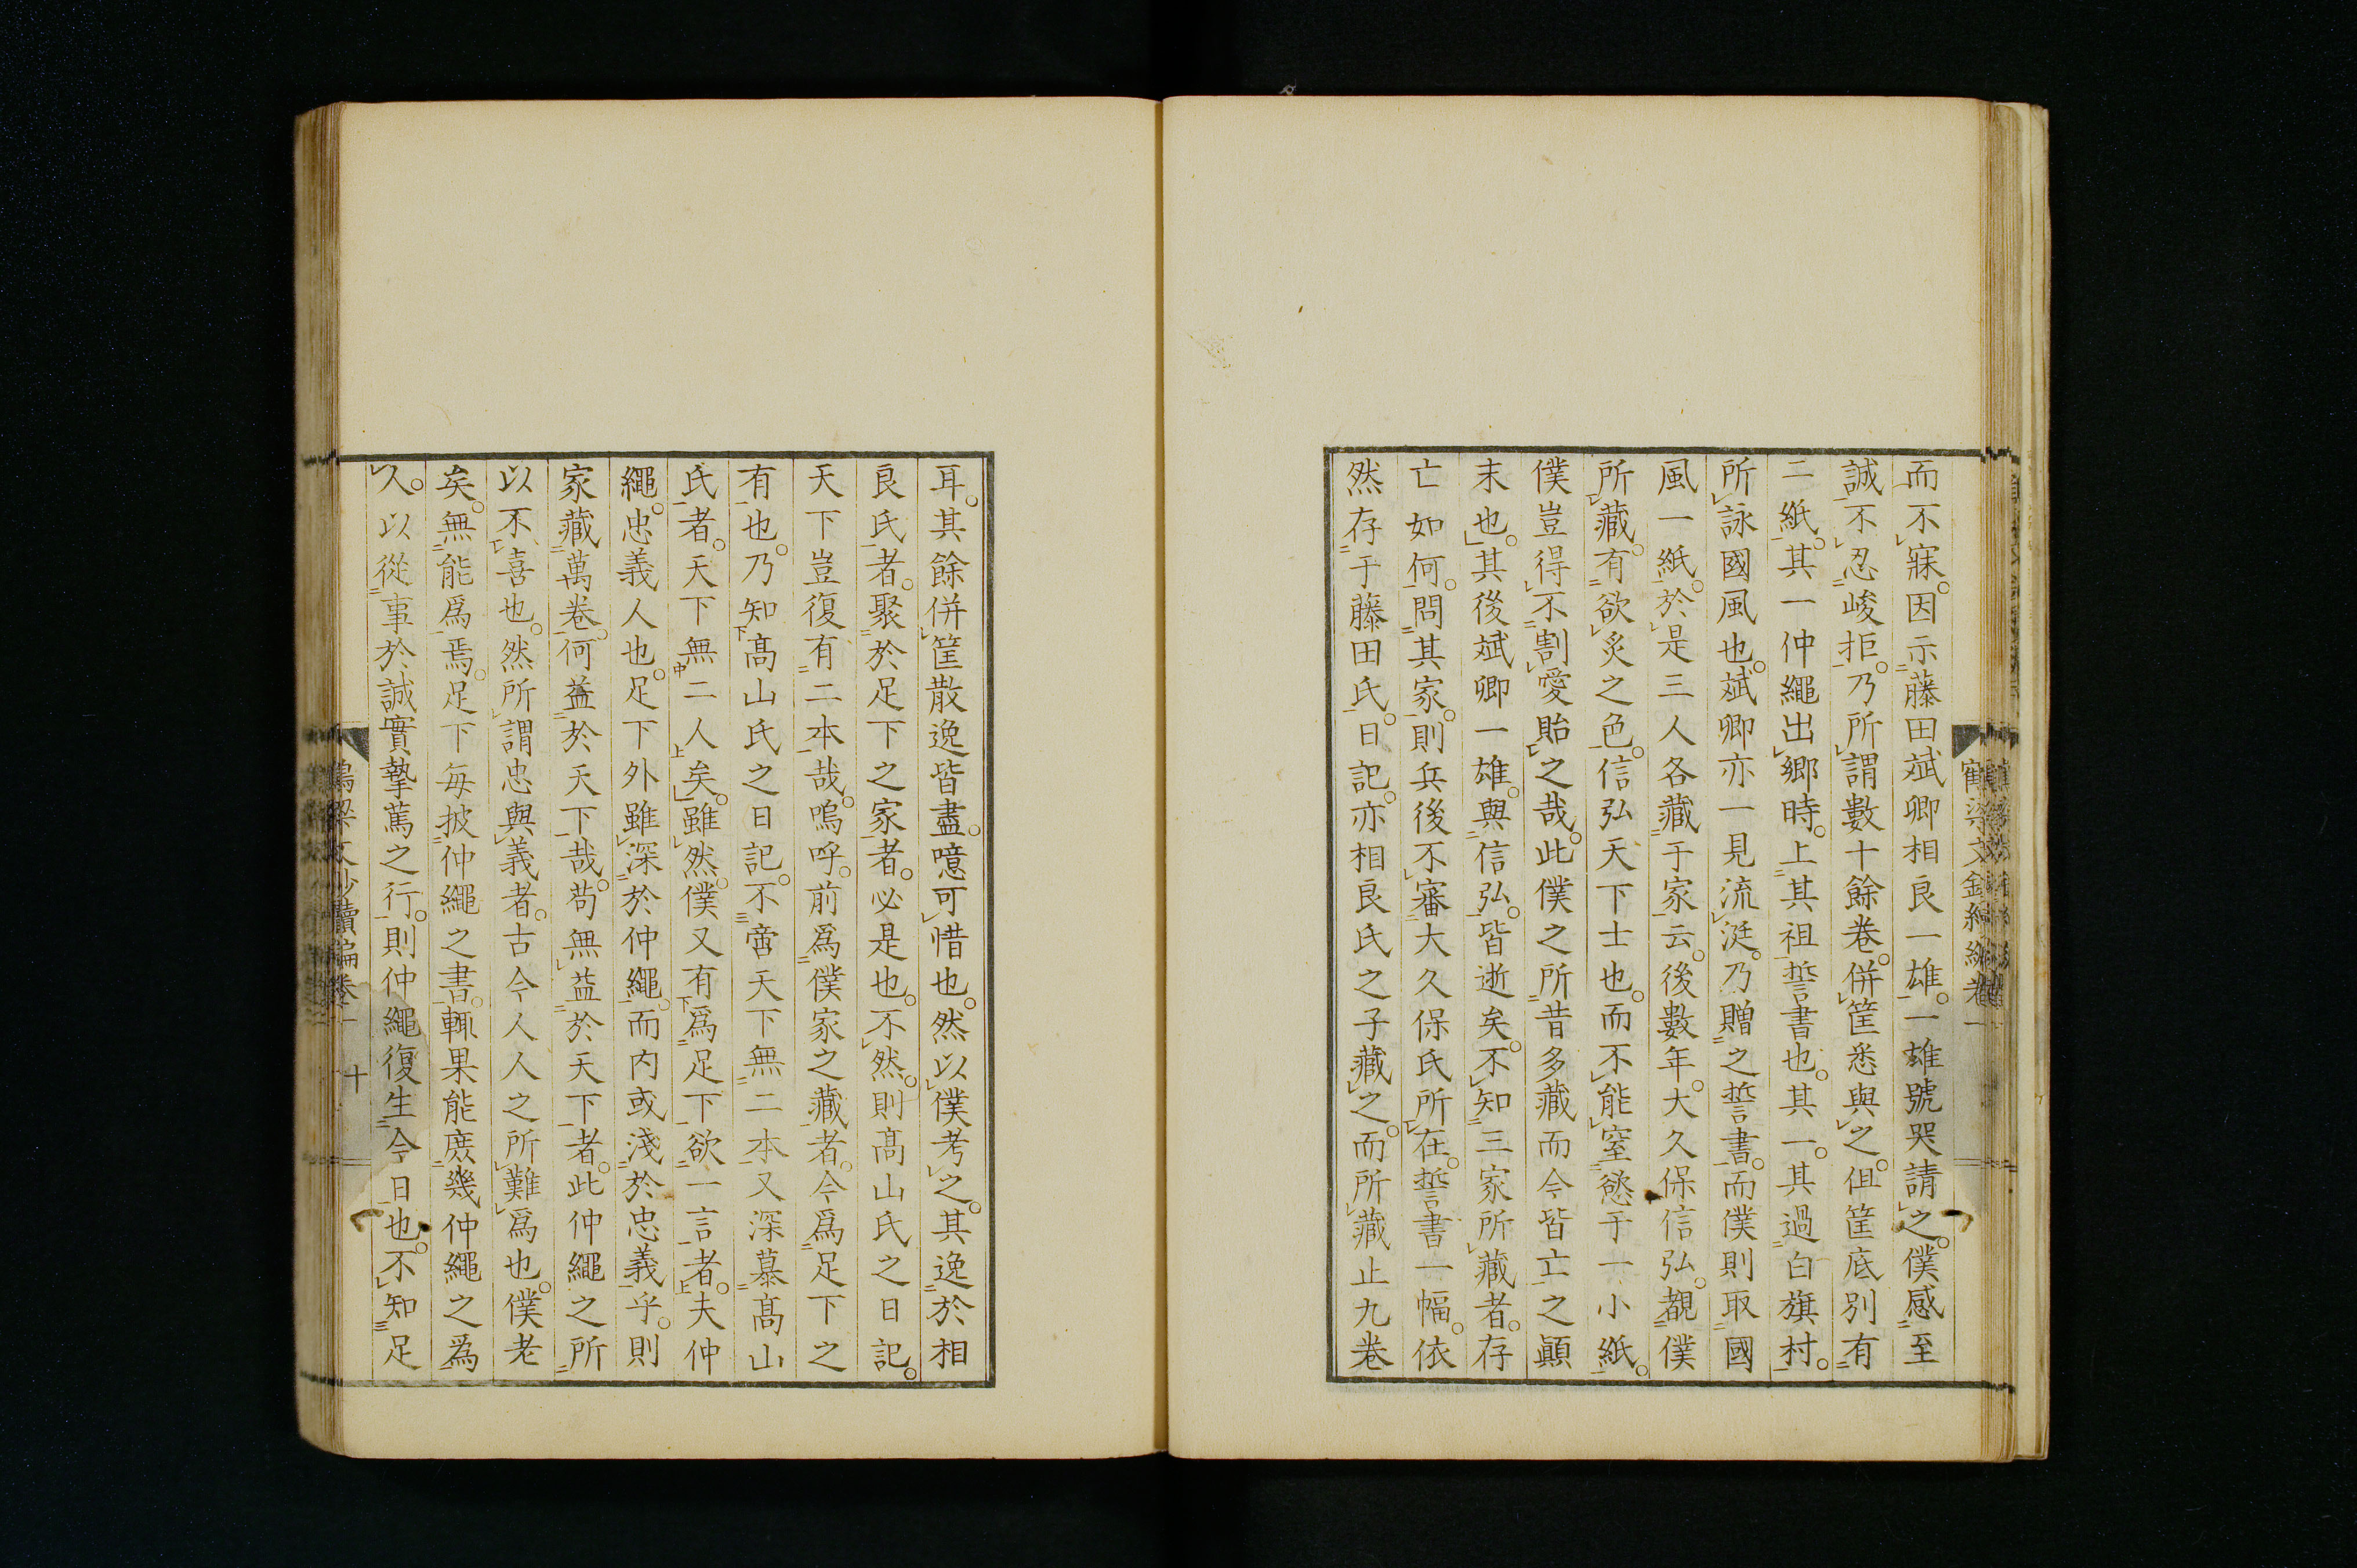 而不寐。因示藤田斌卿相良一雄。一雄號哭請之。僕感至
誠不忍峻拒。乃所謂數十餘卷。併筐悉與之。但筐底別有
二紙。其一仲繩出鄉時。上其祖誓書也。其一。其過白旗村。
所詠國風也。斌卿亦一見流涎。乃贈之誓書。而僕則取國
風一紙。於是三人各藏于家云。後數年。大久保信弘。覩僕
所藏。有欲炙之色。信弘天下士也。而不能窒慾于一小紙。
僕豈得不割愛貽之哉。此僕之所昔多藏而今皆亡之顚
末也。其後斌卿一雄。與信弘。皆逝矣。不知三家所藏者。存
亡如何。問其家。則兵後不審大久保氏所在。誓書一幅。依
然存于藤田氏。日記。亦相良氏之子藏之。而所藏止九卷
耳。其餘併筐散逸皆盡。噫可惜也。然以僕考之。其逸於相
良氏者。聚於足下之家者。必是也。不然。則高山氏之日記。
天下豈復有二本哉。嗚呼。前爲僕家之藏者。今爲足下之
有也。乃知高山氏之日記。不啻天下無二本又深慕高山
氏者。天下無二人矣。雖然。僕又有爲足下欲一言者。夫仲
繩。忠義人也。足下外雖深於仲繩。而内或淺於忠義乎。則
家藏萬卷。何益於天下哉。苟無益於天下者。此仲繩之所
以不喜也。然所謂忠與義者。古今人人之所難爲也。僕老
矣。無能爲焉。足下每披仲繩之書。輒果能庶幾仲繩之爲
人。以從事於誠實摯篤之行。則仲繩復生今日也。不知足
鶴梁文鈔續編卷一 十